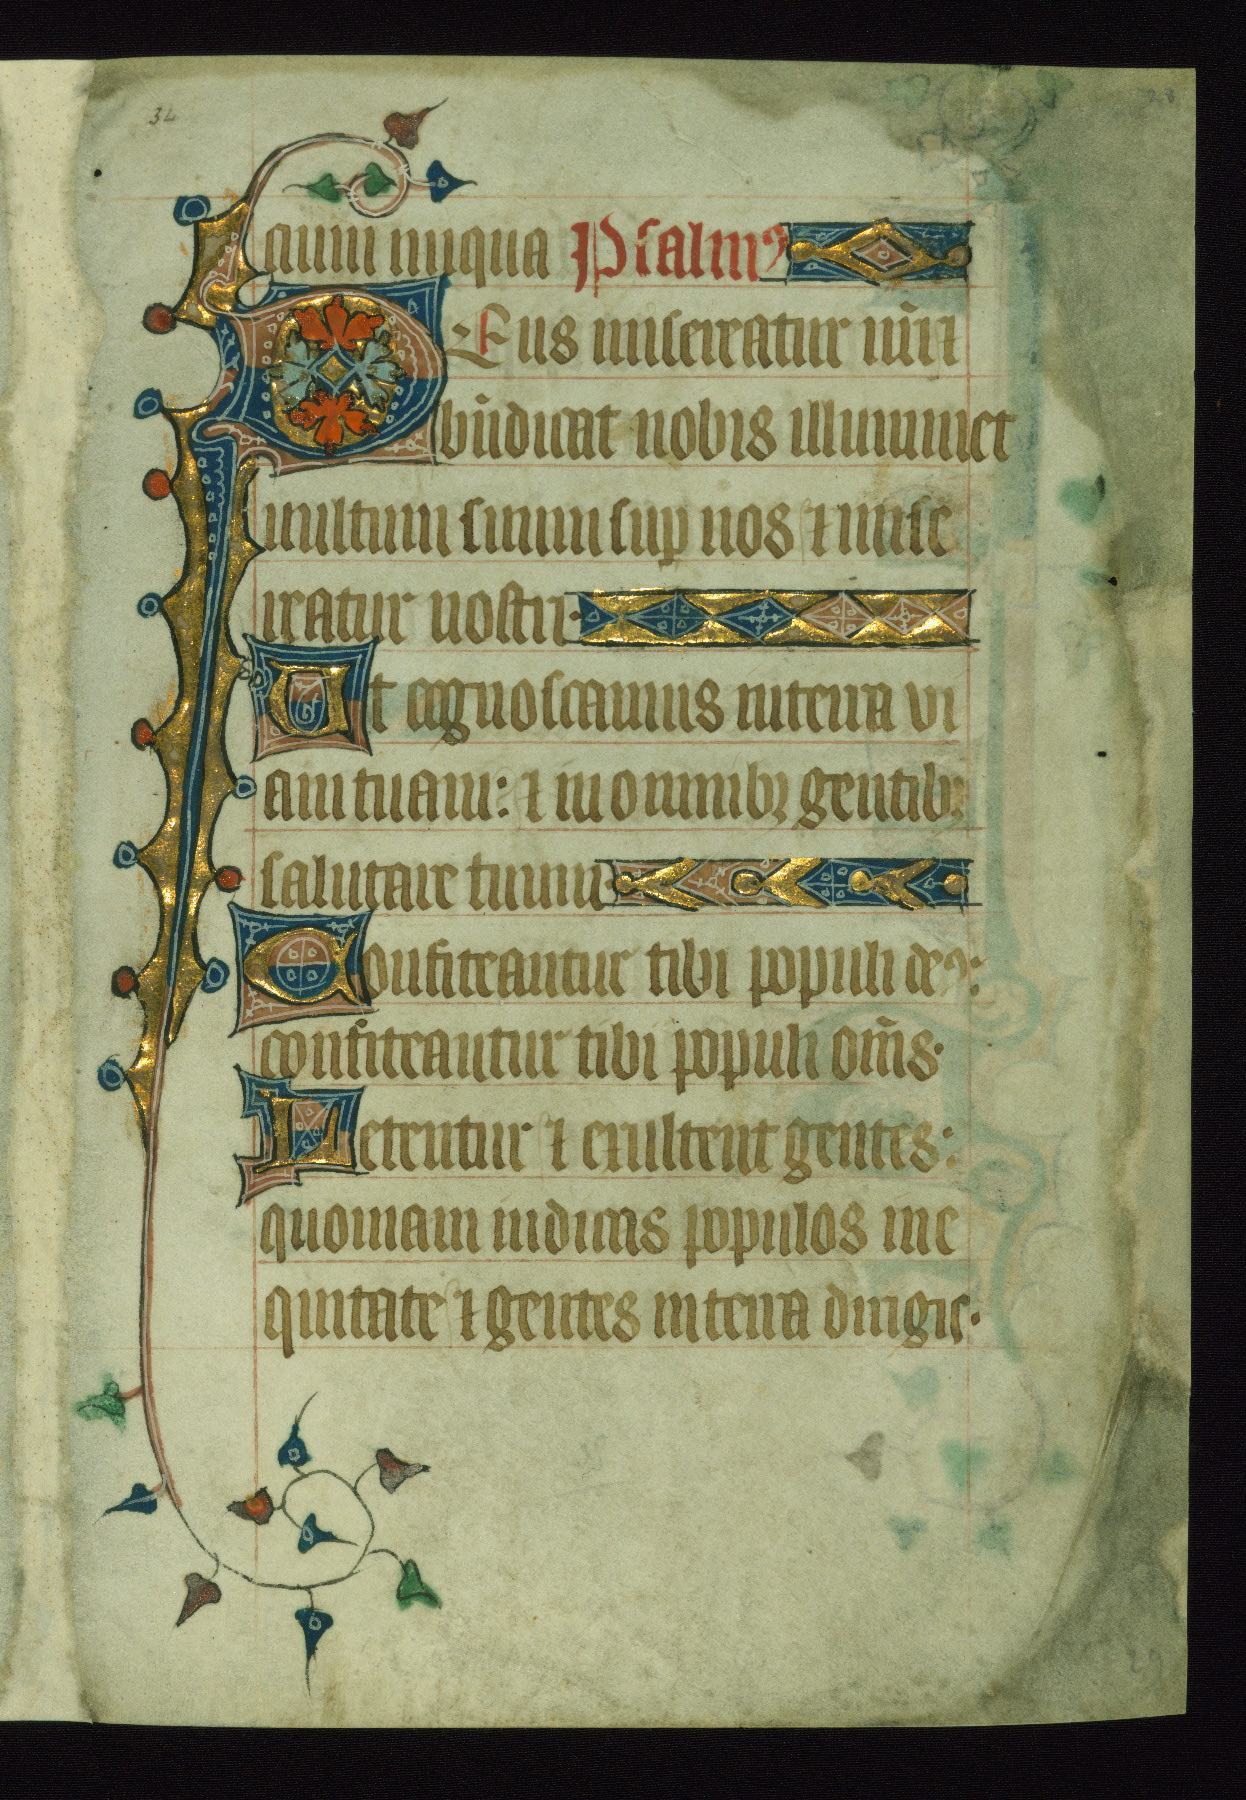 34
28
aum iniqua Psalmꝰ
DEus misereatur nr̄i ⁊
bn̄dicat nobis illuminet
uultum suum suꝑ nos ⁊ mise
reatur nostri·
Ut cognoscamus in terra vi
am tuam: ⁊ in omnibꝫ gentibꝫ
salutare tuum
Confiteantur tibi populi deꝰ:
confiteantur tibi populi om̄s·
Letentur ⁊ exultent gentes:
quoniam iudicas populos in e
quitate ⁊ gentes in terra dirigis·
29